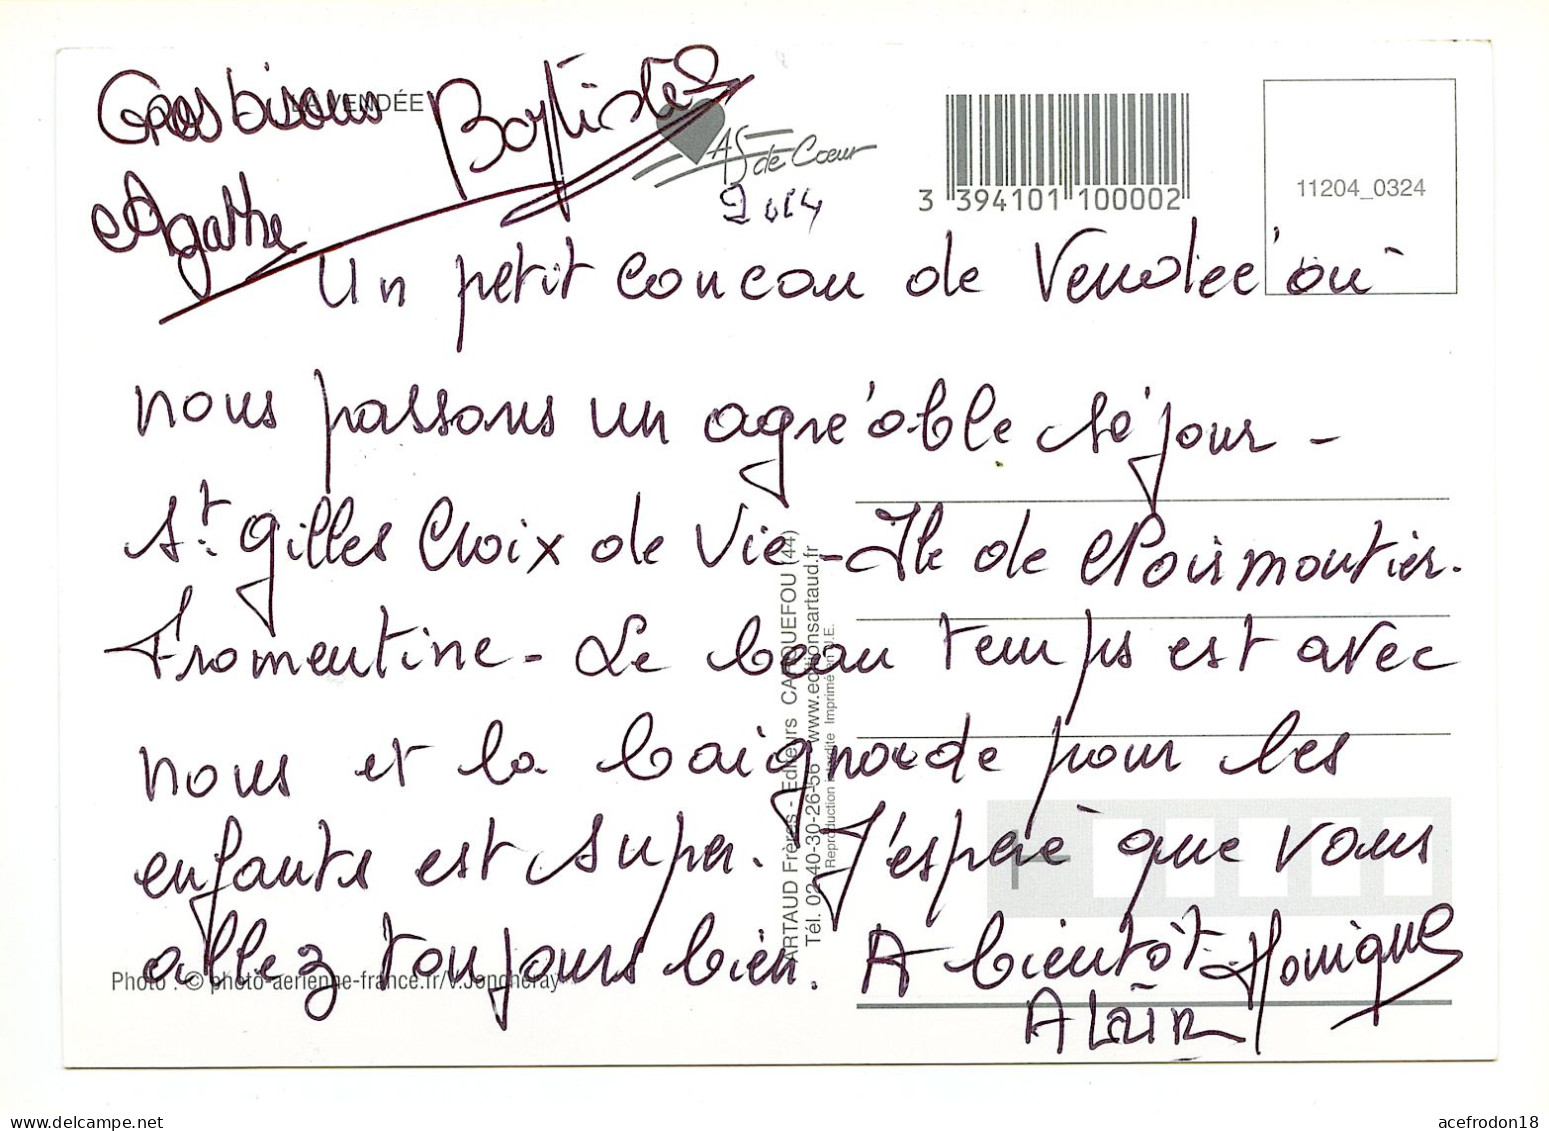 Gros bisous
LA VENDÉE
Baptiste
Agathe
As de Cœur
2014
3 394101 100002
11204_0324
Un petit coucou de Vendée où
nous passons un agréable séjour -
St. Gilles Croix de Vie - Ile de Noirmoutier.
Fromentine - Le beau temps est avec
nous et la baignade pour les
enfants est super. J'espère que vous
allez toujours bien. A bientôt. Monique
Alain
ARTAUD Frères - Editeurs CARQUEFOU (44)
Tél. 02-40-30-26-56 www.editionsartaud.fr
Reproduction interdite Imprimé en U.E.
Photo : © photo-aerienne-france.fr/V.Joncheray
acefrodon18